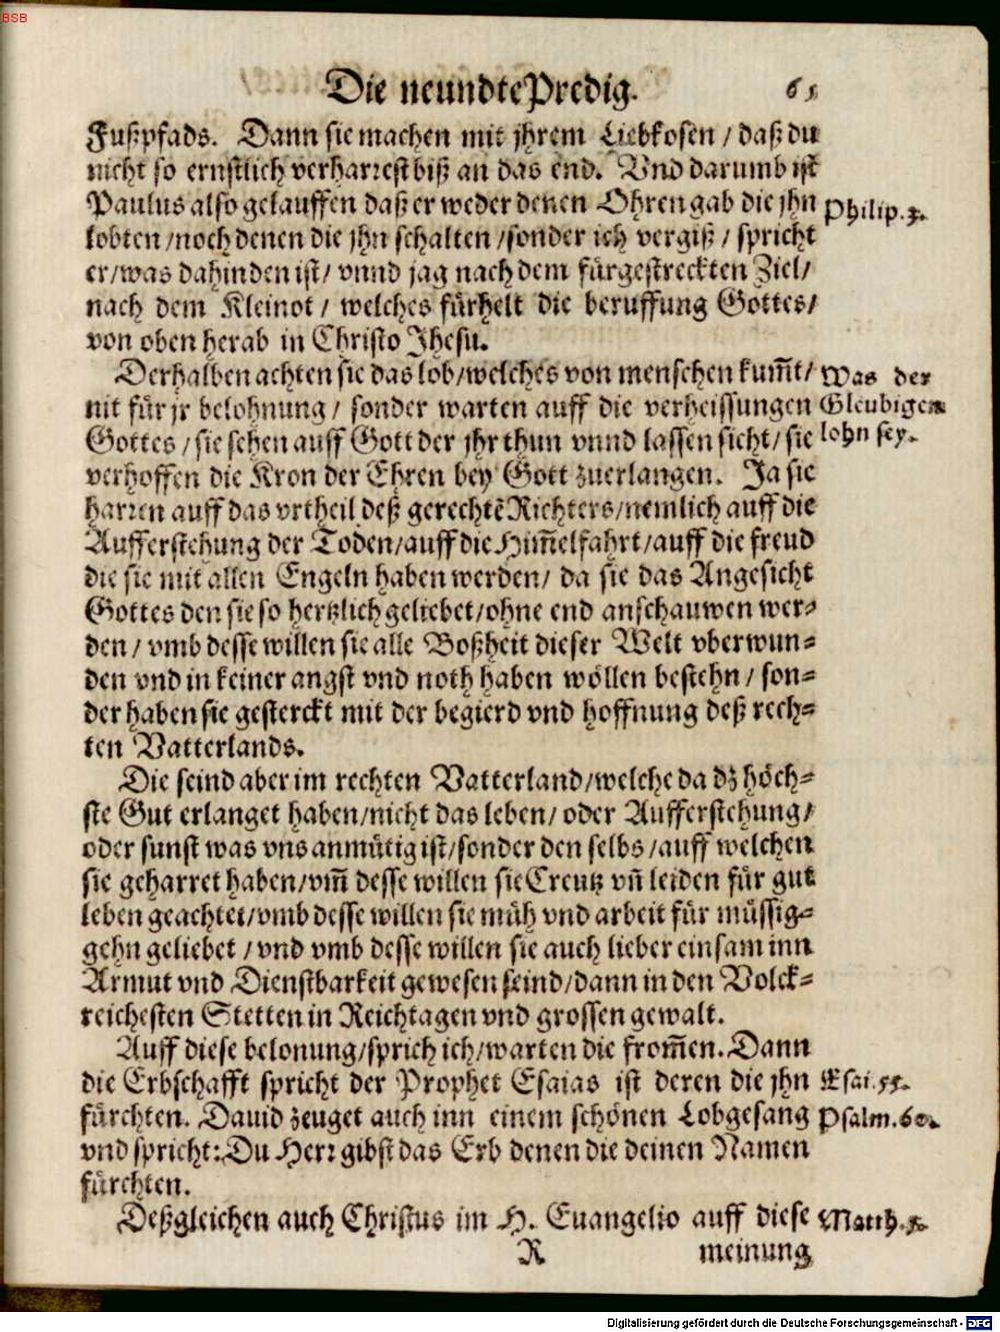 BSB
Die neundte Predig. 65
Fußpfads. Dann sie machen mit jhrem Liebkosen / daß du
nicht so ernstlich verharrest biß an das end. Vnd darumb ist
Paulus also gelauffen daß er weder denen Ohren gab die jhn
Philip. 3.
lobten / noch denen die jhn schalten / sonder ich vergiß / spricht
er / was dahinden ist / vnnd jag nach dem fürgestreckten Ziel /
nach dem Kleinot / welches fürhelt die beruffung Gottes /
von oben herab in Christo Jhesu.
Derhalben achten sie das lob / welches von menschen kum̃t /
Was der
nit für jr belohnung / sonder warten auff die verheissungen
Gleubigen
Gottes / sie sehen auff Gott der jhr thun vnnd lassen sicht / sie
lohn sey.
verhoffen die Kron der Ehren bey Gott zuerlangen. Ja sie
harren auff das vrtheil deß gerechtẽ Richters / nemlich auff die
Aufferstehung der Toden / auff die Him̃elfahrt / auff die freud
die sie mit allen Engeln haben werden / da sie das Angesicht
Gottes den sie so hertzlich geliebet / ohne end anschauwen wer⸗
den / vmb desse willen sie alle Boßheit dieser Welt vberwun⸗
den vnd in keiner angst vnd noth haben wöllen bestehn / son⸗
der haben sie gesterckt mit der begierd vnd hoffnung deß rech⸗
ten Vatterlands.
Die seind aber im rechten Vatterland / welche da dz höch⸗
ste Gut erlanget haben / nicht das leben / oder Aufferstehung /
oder sunst was vns anmütig ist / sonder den selbs / auff welchen
sie geharret haben / vm̃ desse willen sie Creutz vñ leiden für gut
leben geachtet / vmb desse willen sie müh vnd arbeit für müssig⸗
gehn geliebet / vnd vmb desse willen sie auch lieber einsam inn
Armut vnd Dienstbarkeit gewesen seind / dann in den Volck⸗
reichesten Stetten in Reichtagen vnd grossen gewalt.
Auff diese belonung / sprich ich / warten die from̃en. Dann
die Erbschafft spricht der Prophet Esaias ist deren die jhn
Esai. 55.
fürchten. Dauid zeuget auch inn einem schönen Lobgesang
Psalm. 60.
vnd spricht: Du Herr gibst das Erb denen die deinen Namen
fürchten.
Deßgleichen auch Christus im H. Euangelio auff diese
Matth.
R meinung
Digitalisierung gefördert durch die Deutsche Forschungsgemeinschaft - DFG